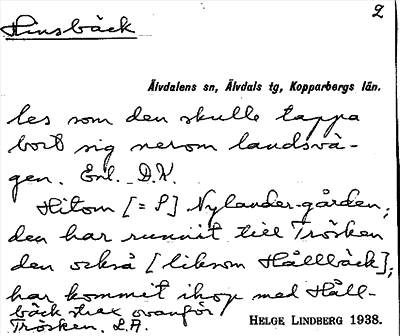 2
Hinsbäck
Älvdalens sn, Älvdals tg, Kopparbergs län.
les som den skulle tappa
bort sig nerom landsvä-
gen. Enl. D.K.
Hitom [= S] Nylander-gården;
den har runnit till Trösken
den också [liksom Hållbäck];
har kommit ihop med Håll-
bäck strax ovanför
Trösken. L.A.
HELGE LINDBERG 1938.